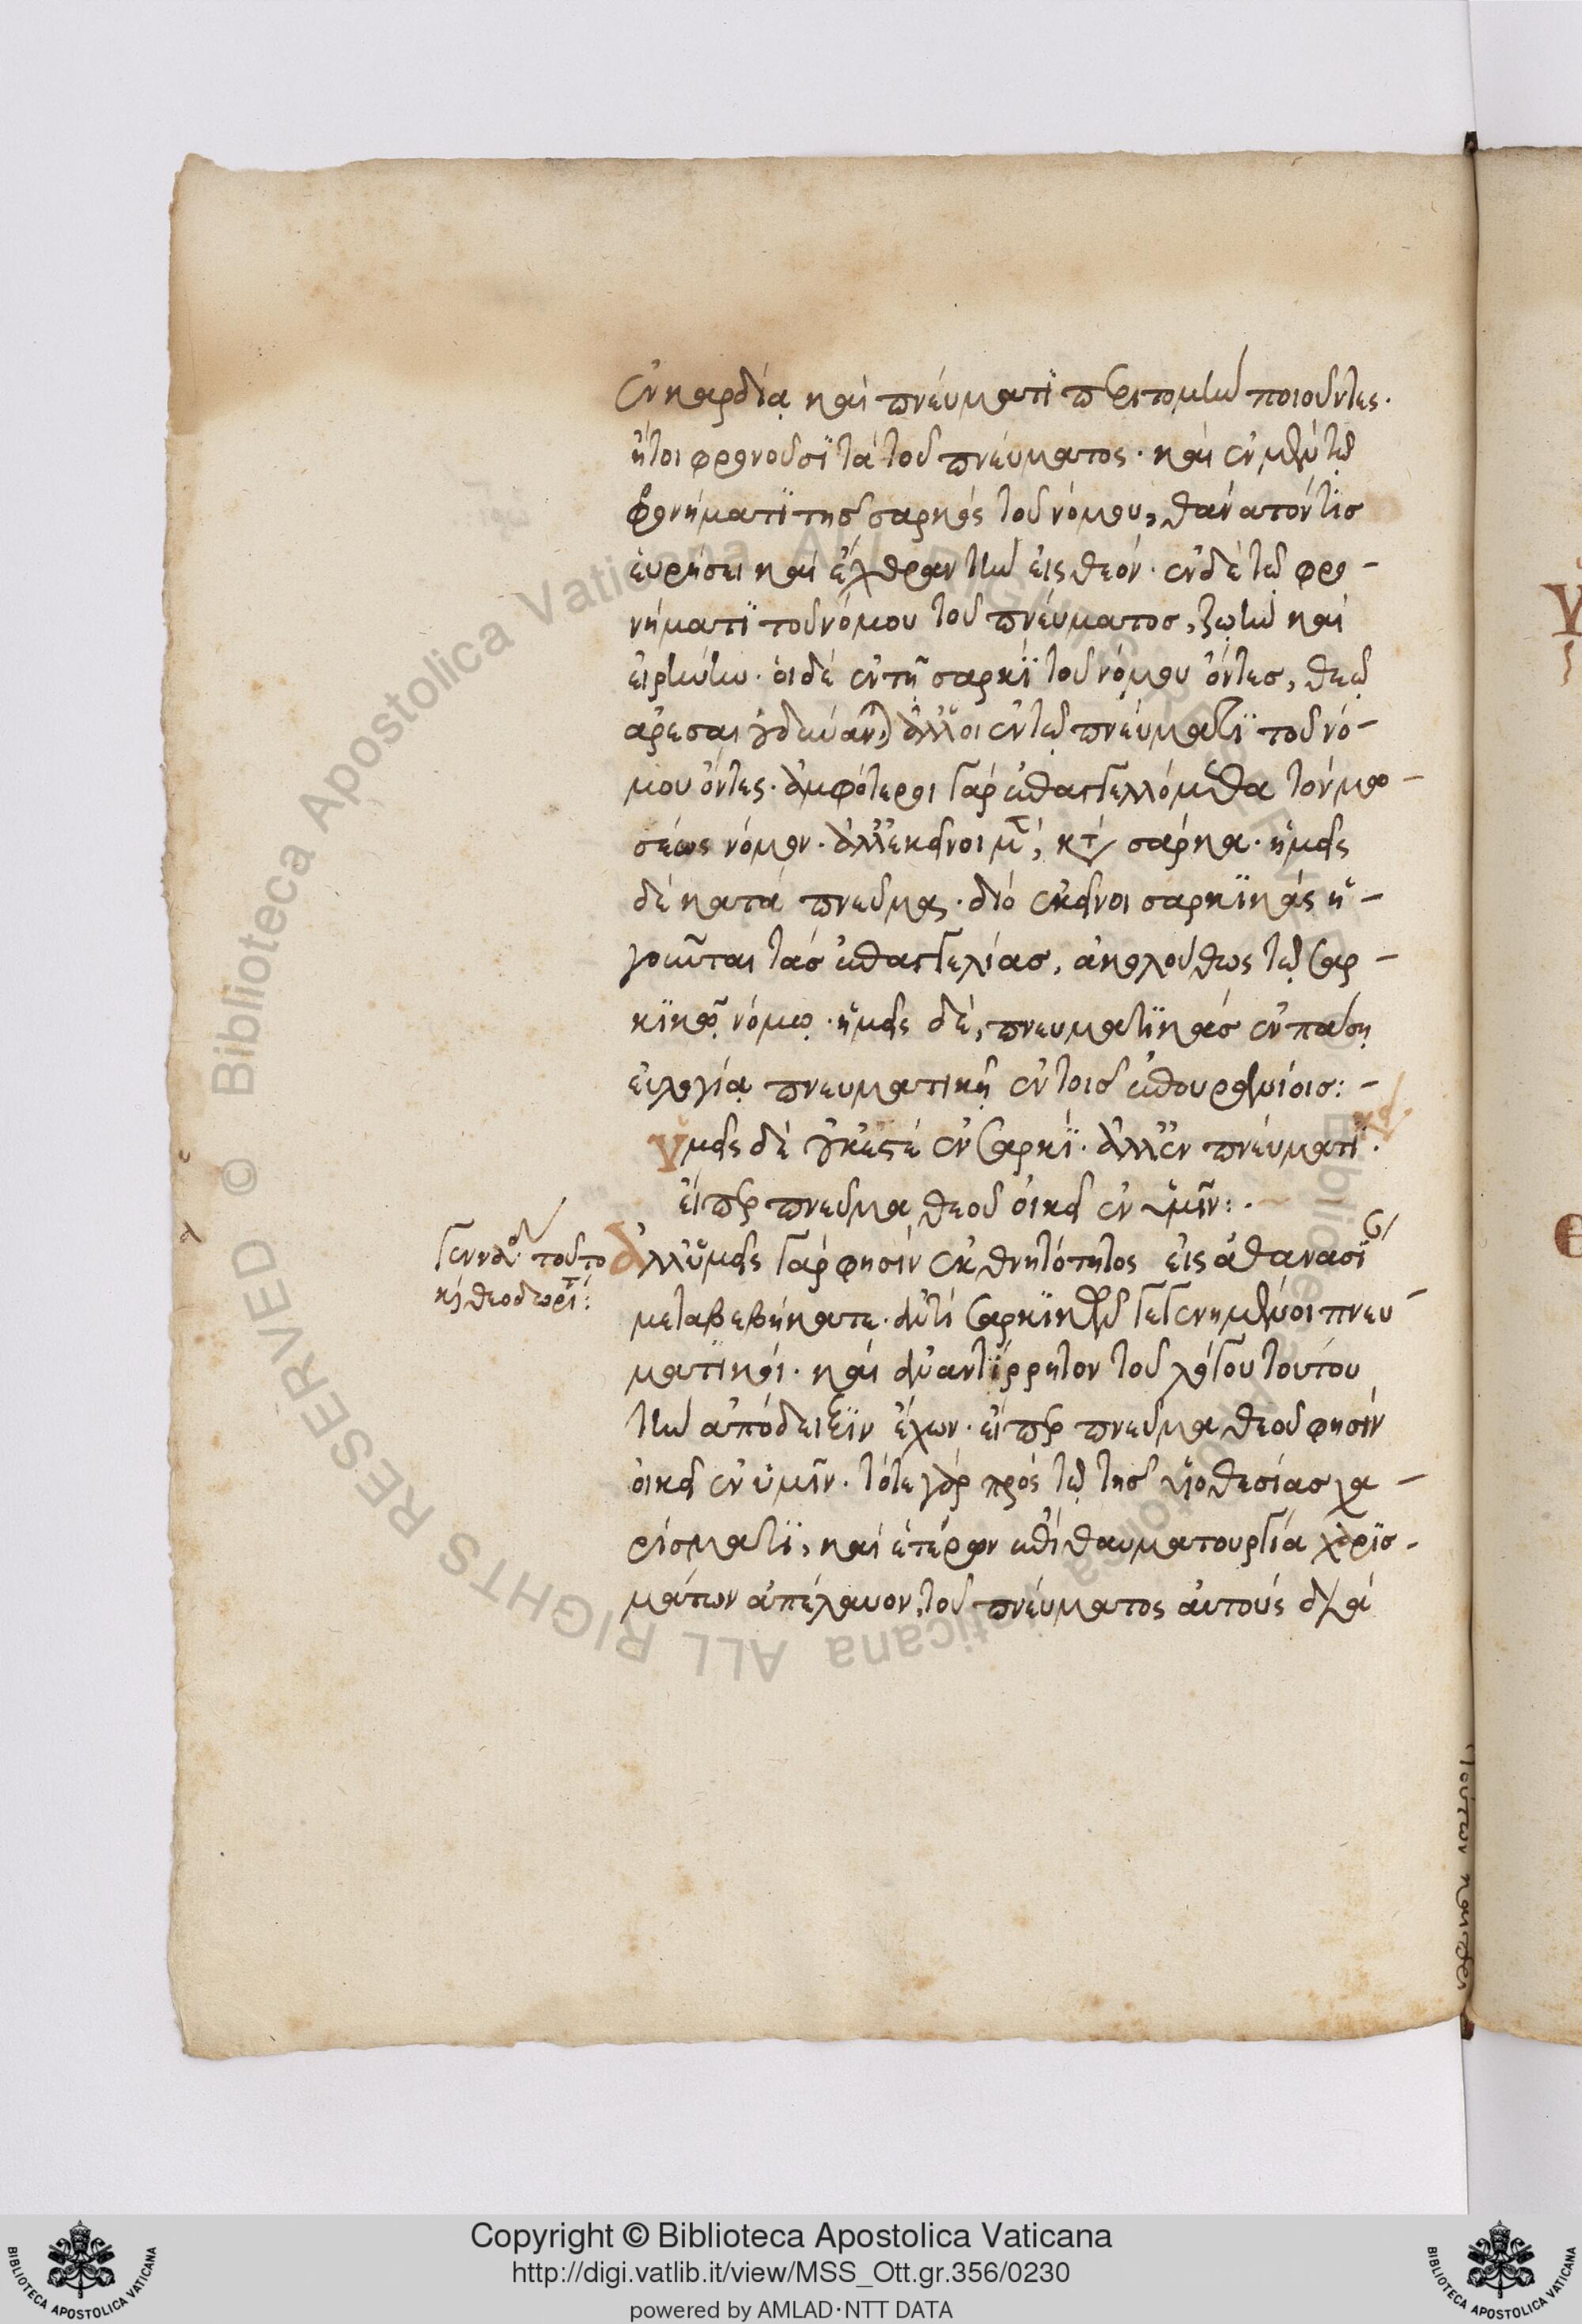 ἐν καρδίᾳ καὶ πνέυματϊ περιτομὴν ποιοῦντες.
ἤτοι φρονοῦσϊ τὰ τοῦ πνέυματος. καὶ ἐν μὲν τῷ
φρονήματϊ τῆς σαρκὸς τοῦ νόμου, θάνατόν τις
ἑυρήσει καὶ ἔχθραν τὴν εἰς θεόν. ἐν δὲ τῷ φρο-
νήματϊ τοῦ νόμου τοῦ πνέυματος, ζωὴν καὶ
εἰρήνην. ὁι δὲ ἐν τῇ σαρκῒ τοῦ νόμου ὄντες, θεῷ
ἀρέσαι οὐ δύνανται, ἀλλ' ὁι ἐν τῷ πνέυματϊ τοῦ νό-
μου ὄντες. ἀμφότεροι γὰρ ἐπαγγελλόμεθα τὸν μω-
σέως νόμον. ἀλλ' ἐκεῖνοι μὲν, κατὰ σάρκα. ἡμεῖς
δὲ κατὰ πνεῦμα. διὸ ἐκεῖνοι σαρκϊκὰς ἡ-
γοῦνται τὰς ἐπαγγελίας, ἀκολούθως τῷ σαρ-
κϊκῷ νόμῳ. ἡμεῖς δὲ, πνευματϊκὰς ἐν πάσῃ
ἐυλογίᾳ πνευματικῇ ἐν τοῖς ἐπουρανίοις:-
ὑμεῖς δὲ οὐκ ἐστὲ ἐν σαρκΐ. ἀλλ' ἐν πνέυματϊ.
εἴπερ πνεῦμα θεοῦ οἰκεῖ ἐν ὑμῖν:.
Γενναδ τοῦτο
κὶ θεοδωρί:
ἀλλ' ὑμεῖς γὰρ φησὶν ἐκ θνητότητος εἰς ἀθανασϊ
μεταβεβήκατε. ἀντὶ σαρκϊκῶν γεγενημένοι πνευ-
ματϊκοί. καὶ ἀναντΐρρητον τοῦ λόγου τούτου
τὴν ἀπόδειξϊν ἔχων. εἴπερ πνεῦμα θεοῦ φησὶν
οἰκεῖ ἐν ὑμῖν. τότε γὰρ πρὸς τῷ τῆς υἱοθεσίας χα-
ρίσματϊ, καὶ ἑτέρων ἐπὶ θαυματουργία χαρϊσ-
μάτων ἀπέλαυον, τοῦ πνέυματος ἀυτοὺς διὰ
τούτων
Copyright © Biblioteca Apostolica Vaticana
http://digi.vatlib.it/view/MSS_Ott.gr.356/0230
powered by AMLAD·NTT DATA
BIBLIOTECA APOSTOLICA VATICANA
BIBLIOTECA APOSTOLICA VATICANA
© Biblioteca Apostolica Vaticana ALL RIGHTS RESERVED